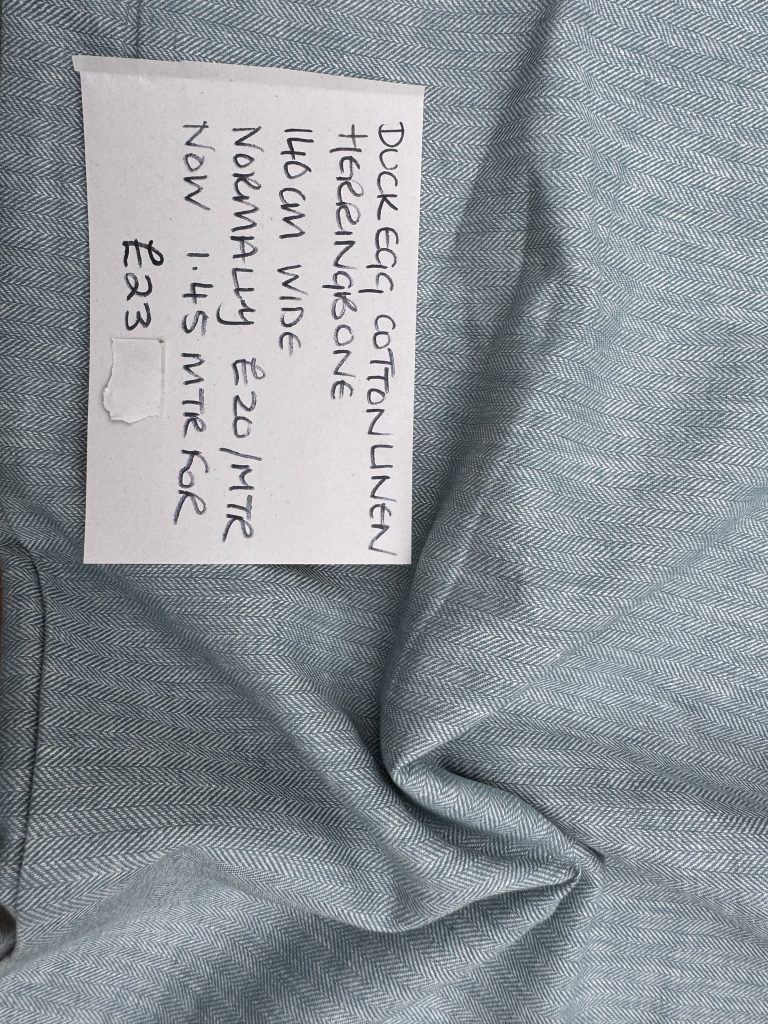 DUCK EGG COTTON LINEN
HERRINGBONE
140CM WIDE
NORMALLY £20/MTR
NOW 1.45 MTR FOR
£23